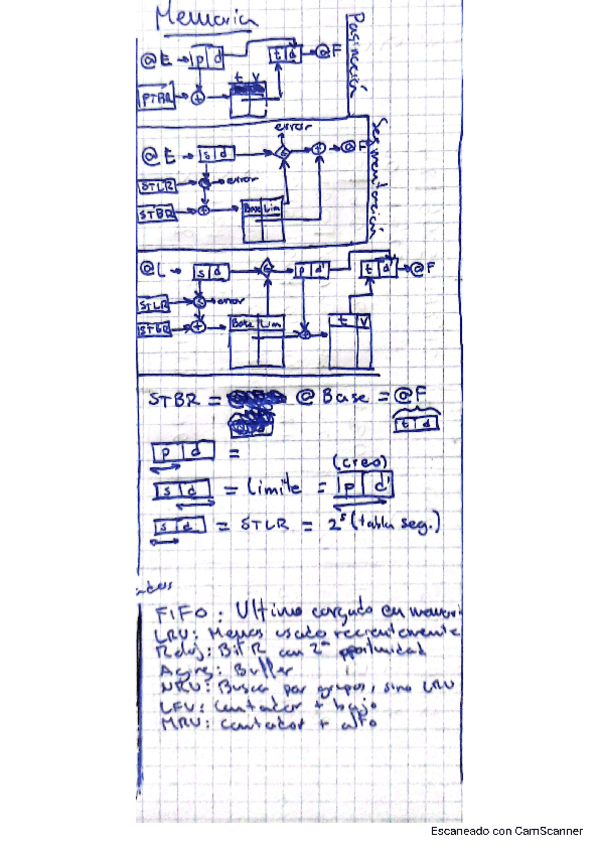 Memoria
@E → p d t d → @F
t V
PTBR → +
Paginación
error
@E → s d + → @F
STLR → error
STBR → + Base Lim
Segmentación
@L → s d p d' t d' → @F
STLR → error
STBR → + Base Lim + t V
STBR = @ Base = @F
t d
p d =
(creo)
s d = Limite = p d'
s d = STLR = 2^s (tabla seg.)
FIFO: Ultimo cargado en memoria
LRU: Menos usado recientemente
Reloj: Bit R con 2ª oportunidad
Buffer
NRU: Busca por grupos, sino LRU
LFU: contador + bajo
MRU: contador + alto
Escaneado con CamScanner